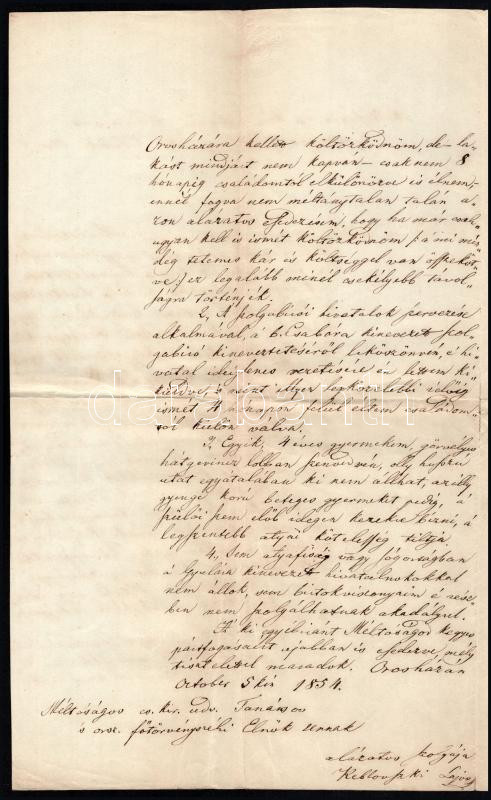 Orosházára kellett költözködnöm, de – la-
kást mindjárt nem kapván – csaknem 8
hónapig családomtól elkülönözve is élnem,
ennél fogva nem méltánytalan talán a-
zon alázatos esedezésem, hogy ha már csak-
ugyan kell is ismét költözködnöm /: a mi min-
dég tetemes kár és költséggel van öszpekötve :/ ez legalább minél csekélyebb távol-
ságra történjék.
2, A polgabírói hivatalok szervezése
alkalmával, a B. Csabára kinevezett szol-
gabíró kineveztetéséről leköszönvén, é hi-
vatal ideiglenes vezetésére is lettem ki-
küldve, s mint legközelebbi időig
ismét 4 hónapon felül éltem családom-
tól külön válva.
3, Egyik, 4 éves gyermekem, görvélyes
hátgerincz lobban szenvedvén, oly hosszú
utat egyátalában ki nem állhat, az illy
gyenge korú beteges gyermeket pedig, a
szülői szem előb idegen kezekre bízni, a
legszentebb atyai kötelesség tiltja.
4, Sem atyafiság vagy sógorságban
a Gyulára kinevezett hivatalnokokkal
nem állok, sem birtokviszonyaim é rész-
ben nem szolgálhatnak akadályul.
A ki egyébiránt Méltóságod kegyes
pártfogásáért újabban is esedezve, mély
tisztelettel maradok. Orosházán
October 5kén 1854.
Méltóságos cs. kir. udv. Tanácsos
s orsz. főtörvényszéki Elnök Urnak
alázatos szolgája
Reblovszki Lajos
darabanth